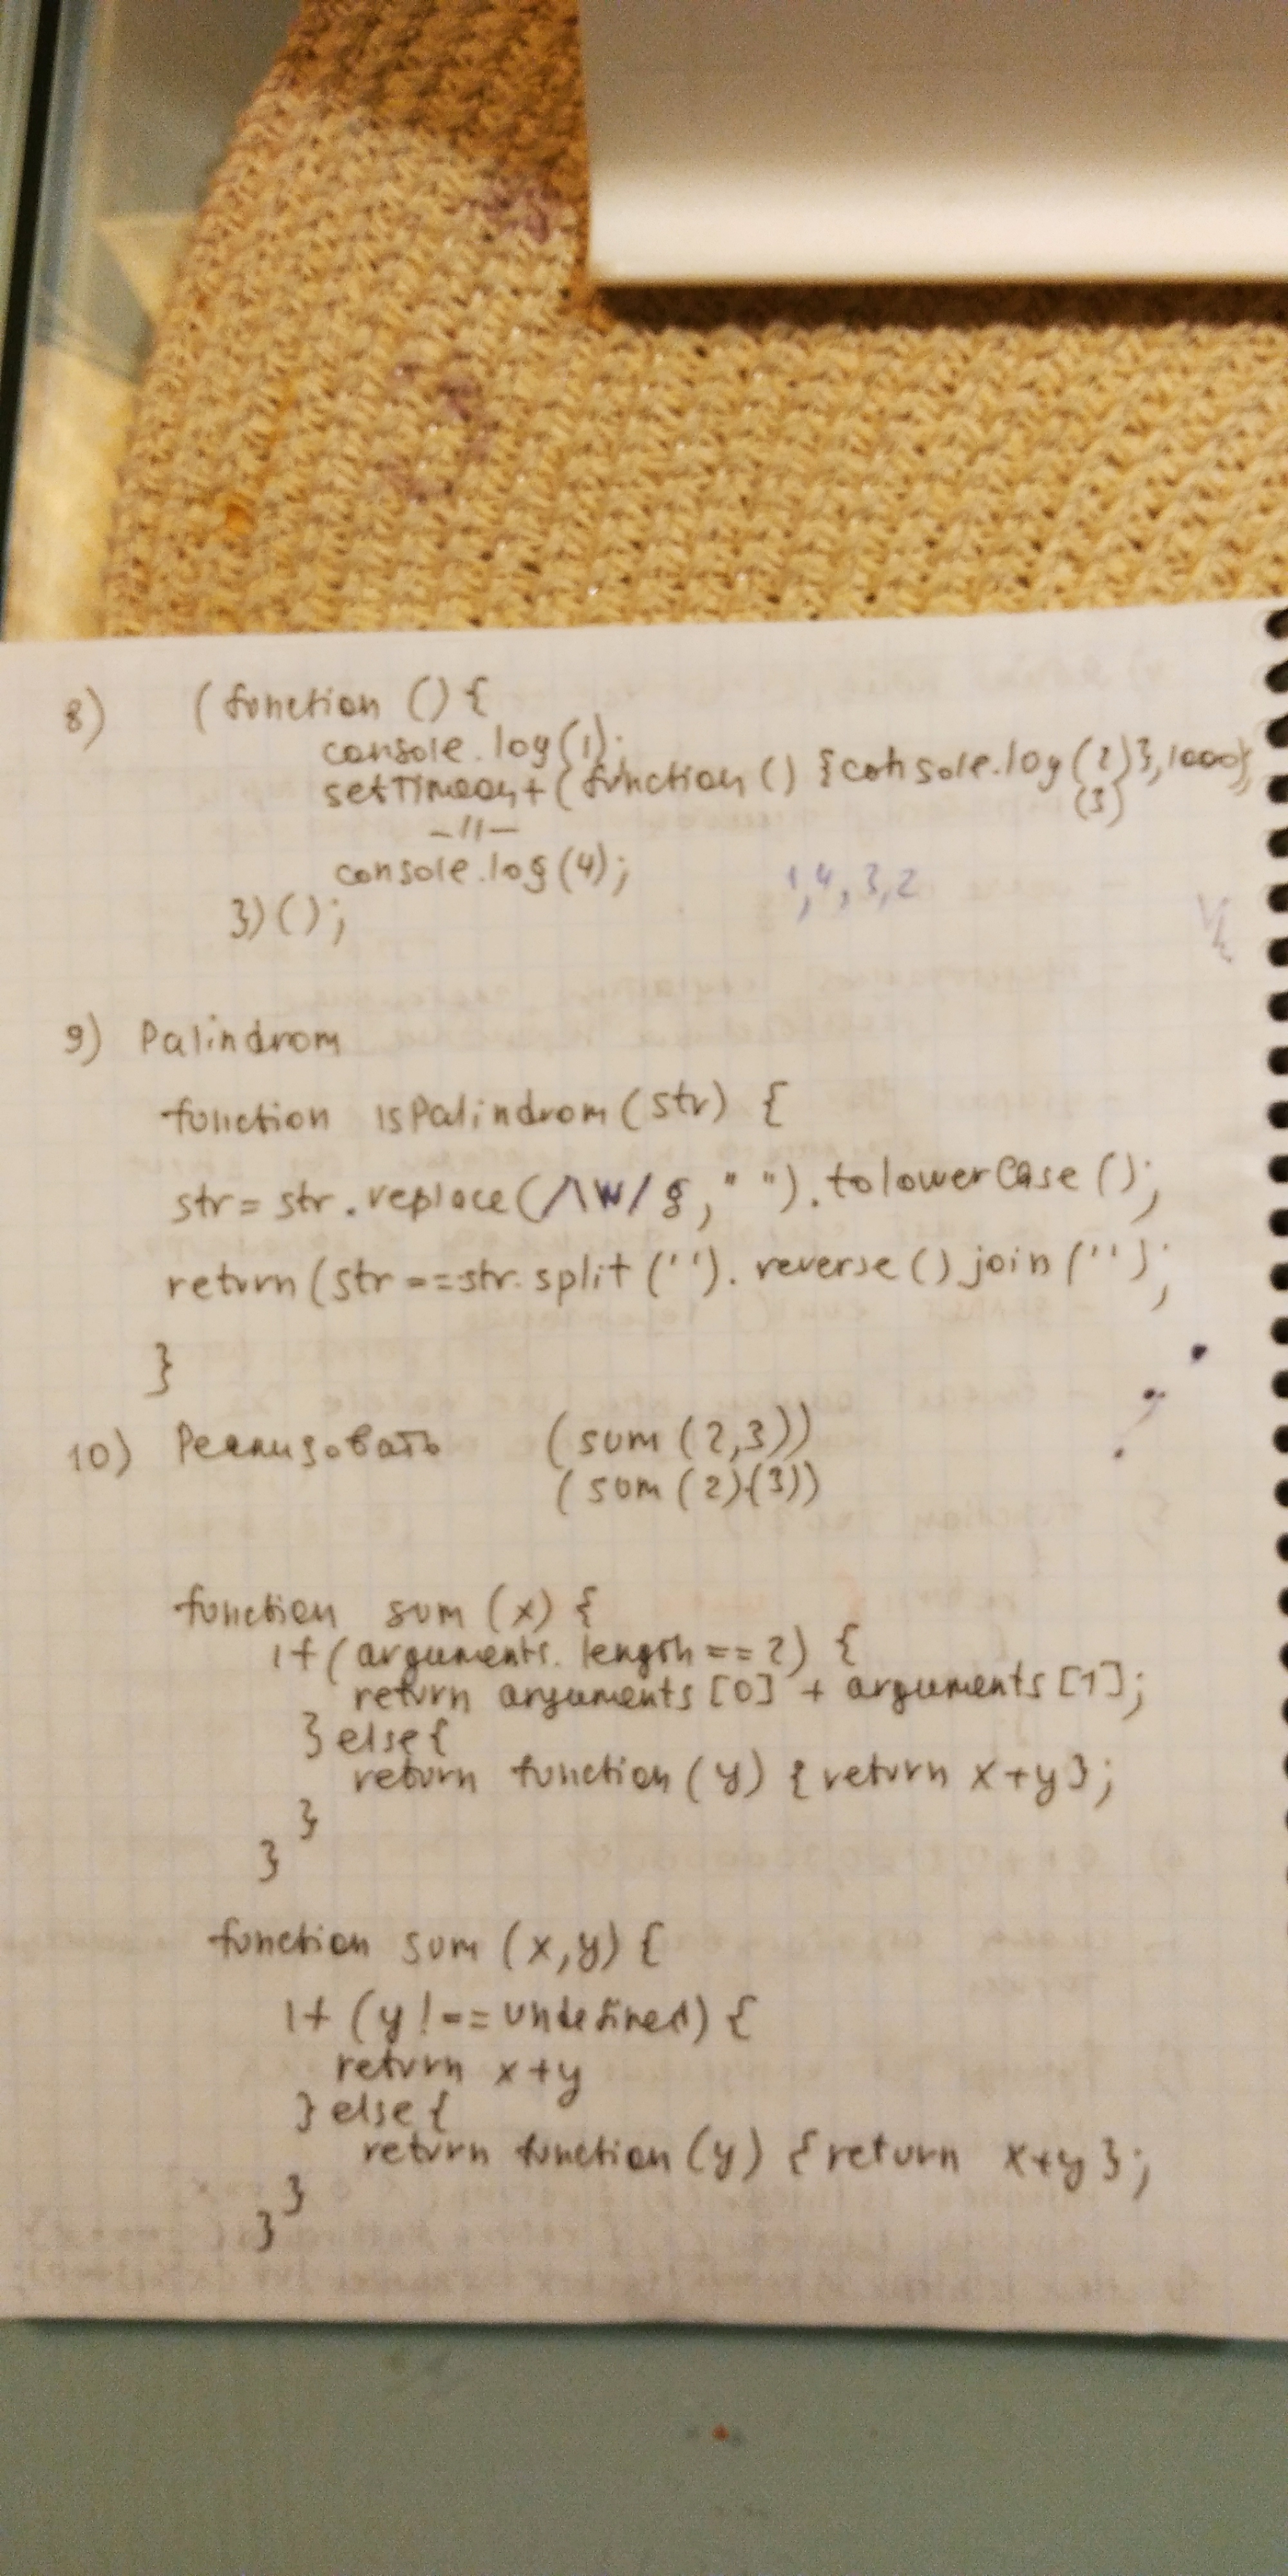 8) (function () {
console.log(1);
setTimeout(function () {console.log(2)},1000);
(3)
–//–
console.log(4);
1,4,3,2
})();
9) Palindrom
function isPalindrom(str) {
str= str.replace(/\W/g," ").toLowerCase();
return(str ==str.split('').reverse().join('');
}
10) Реализовать (sum (2,3))
(sum (2)(3))
function sum (x) {
if(arguments.length == 2) {
return arguments[0] + arguments[1];
} else{
return function (y) {return x+y};
}
}
function sum (x,y) {
if (y !== undefined) {
return x+y
} else{
return function (y) {return x+y};
}
}